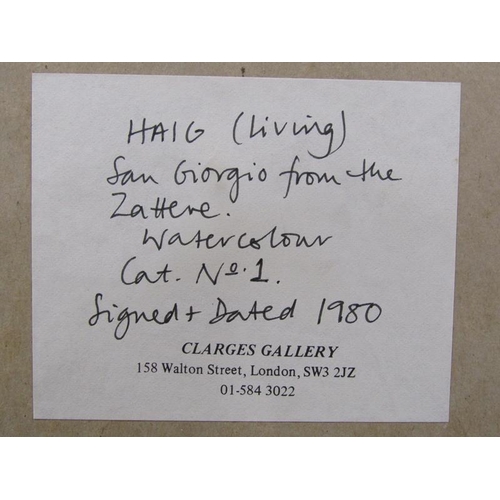 HAIG (living)
San Giorgio from the
Zattere.
Watercolour
Cat. No. 1.
Signed + Dated 1980
CLARGES GALLERY
158 Walton Street, London, SW3 2JZ
01-584 3022